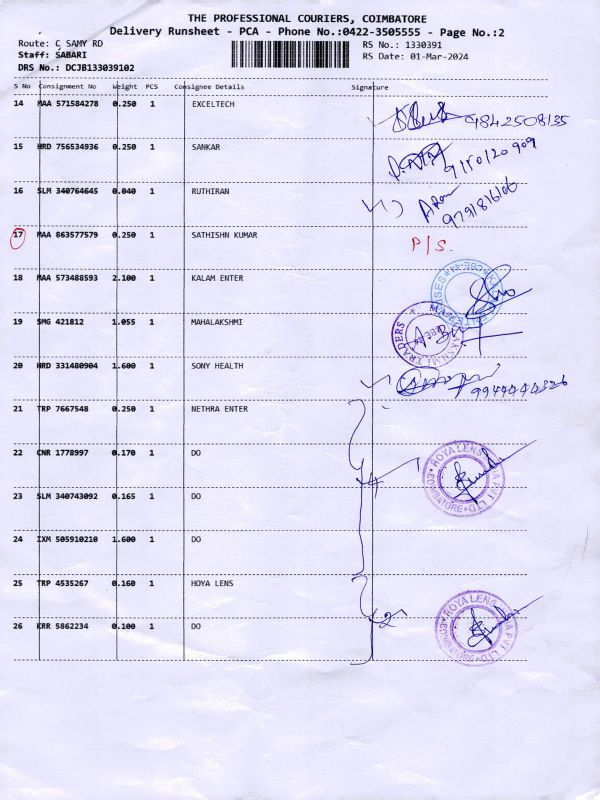 THE PROFESSIONAL COURIERS, COIMBATORE
Delivery Runsheet - PCA - Phone No.:0422-3505555 - Page No.:2
Route: C SAMY RD RS No.: 1330391
Staff: SABARI RS Date: 01-Mar-2024
DRS No.: DCJB133039102
S No Consignment No Weight PCS Consignee Details Signature
14 MAA 571584278 0.250 1 EXCELTECH 9842508135
15 HRD 756534936 0.250 1 SANKAR 9150120909
16 SLM 340764645 0.040 1 RUTHIRAN
17 MAA 863577579 0.250 1 SATHISHN KUMAR P/S.
18 MAA 573488593 2.100 1 KALAM ENTER
19 SMG 421812 1.055 1 MAHALAKSHMI TRADERS
20 HRD 331480904 1.600 1 SONY HEALTH
21 TRP 7667548 0.250 1 NETHRA ENTER
22 CNR 1778997 0.170 1 DO
23 SLM 340743092 0.165 1 DO 4 HOYA LENS PVT. LTD COIMBATORE
24 IXM 505910210 1.600 1 DO
25 TRP 4535267 0.160 1 HOYA LENS
26 KRR 5862234 0.100 1 DO 2 HOYA LENS PVT. LTD COIMBATORE